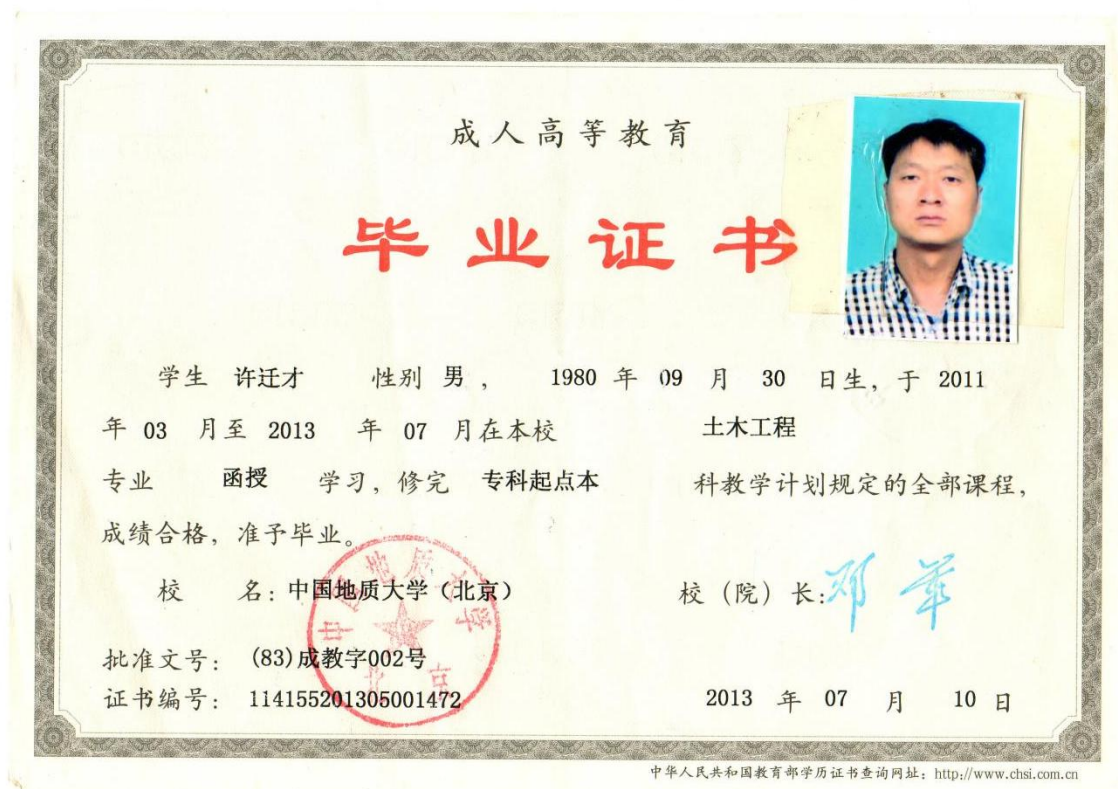 成人高等教育
毕业证书
学生 许迁才 性别 男 ， 1980 年 09 月 30 日生，于 2011
年 03 月至 2013 年 07 月在本校 土木工程
专业 函授 学习，修完 专科起点本 科教学计划规定的全部课程，
成绩合格，准予毕业。
校 名：中国地质大学（北京） 校（院）长：邓军
批准文号： (83)成教字002号
证书编号： 114155201305001472 2013 年 07 月 10 日
中国地质大学
北京
中华人民共和国教育部学历证书查询网址：http://www.chsi.com.cn